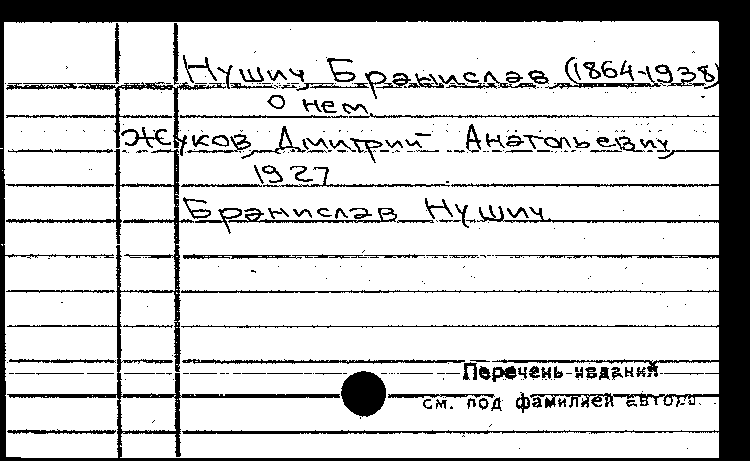 Нушич Бранислав (1864-1938)
о нем.
Жуков, Дмитрий Анатольевич
1927
Бранислав Нушич.
Перечень изданий
см. под фамилией автора